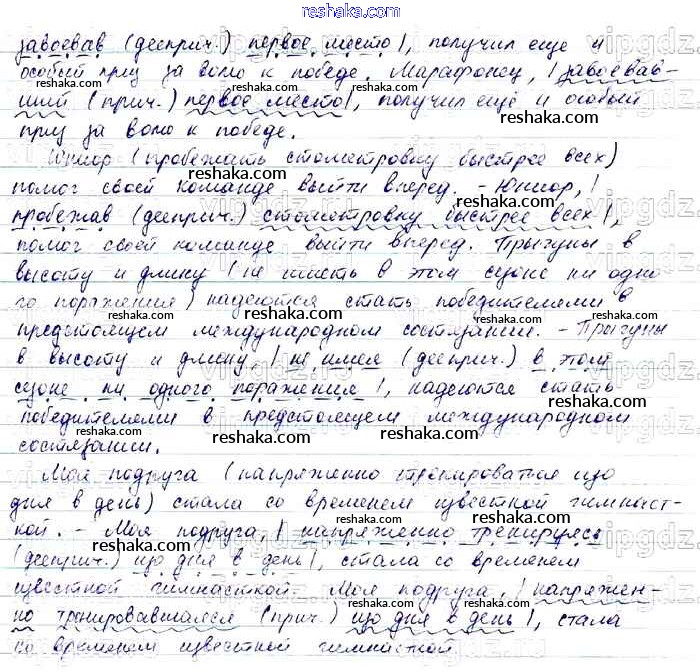 reshaka.com
завоевав (дееприч.) первое место|, получил еще и
особый приз за волю к победе. Марафонец, | завоевав-
ший (прич.) первое место|, получил ещё и особый
приз за волю к победе.
Юниор (пробежать стометровку быстрее всех)
помог своей команде выйти вперед. - Юниор, |
пробежав (дееприч.) стометровку быстрее всех|,
помог своей команде выйти вперед. Прыгуны в
высоту и длину (не иметь в этом сезоне ни одно
го поражения) надеются стать победителями в
предстоящем международном состязании. - Прыгуны
в высоту и длину, | не имея (дееприч.) в этом
сезоне ни одного поражения|, надеются стать
победителями в предстоящем международном
состязании.
Моя подруга (напряженно тренироваться изо
дня в день) стала со временем известной гимнаст-
кой. - Моя подруга, | напряженно тренируясь
(дееприч.) изо дня в день|, стала со временем
известной гимнасткой. Моя подруга, | напряжен-
но тренировавшаяся (прич.) изо дня в день|, стала
со временем известной гимнасткой